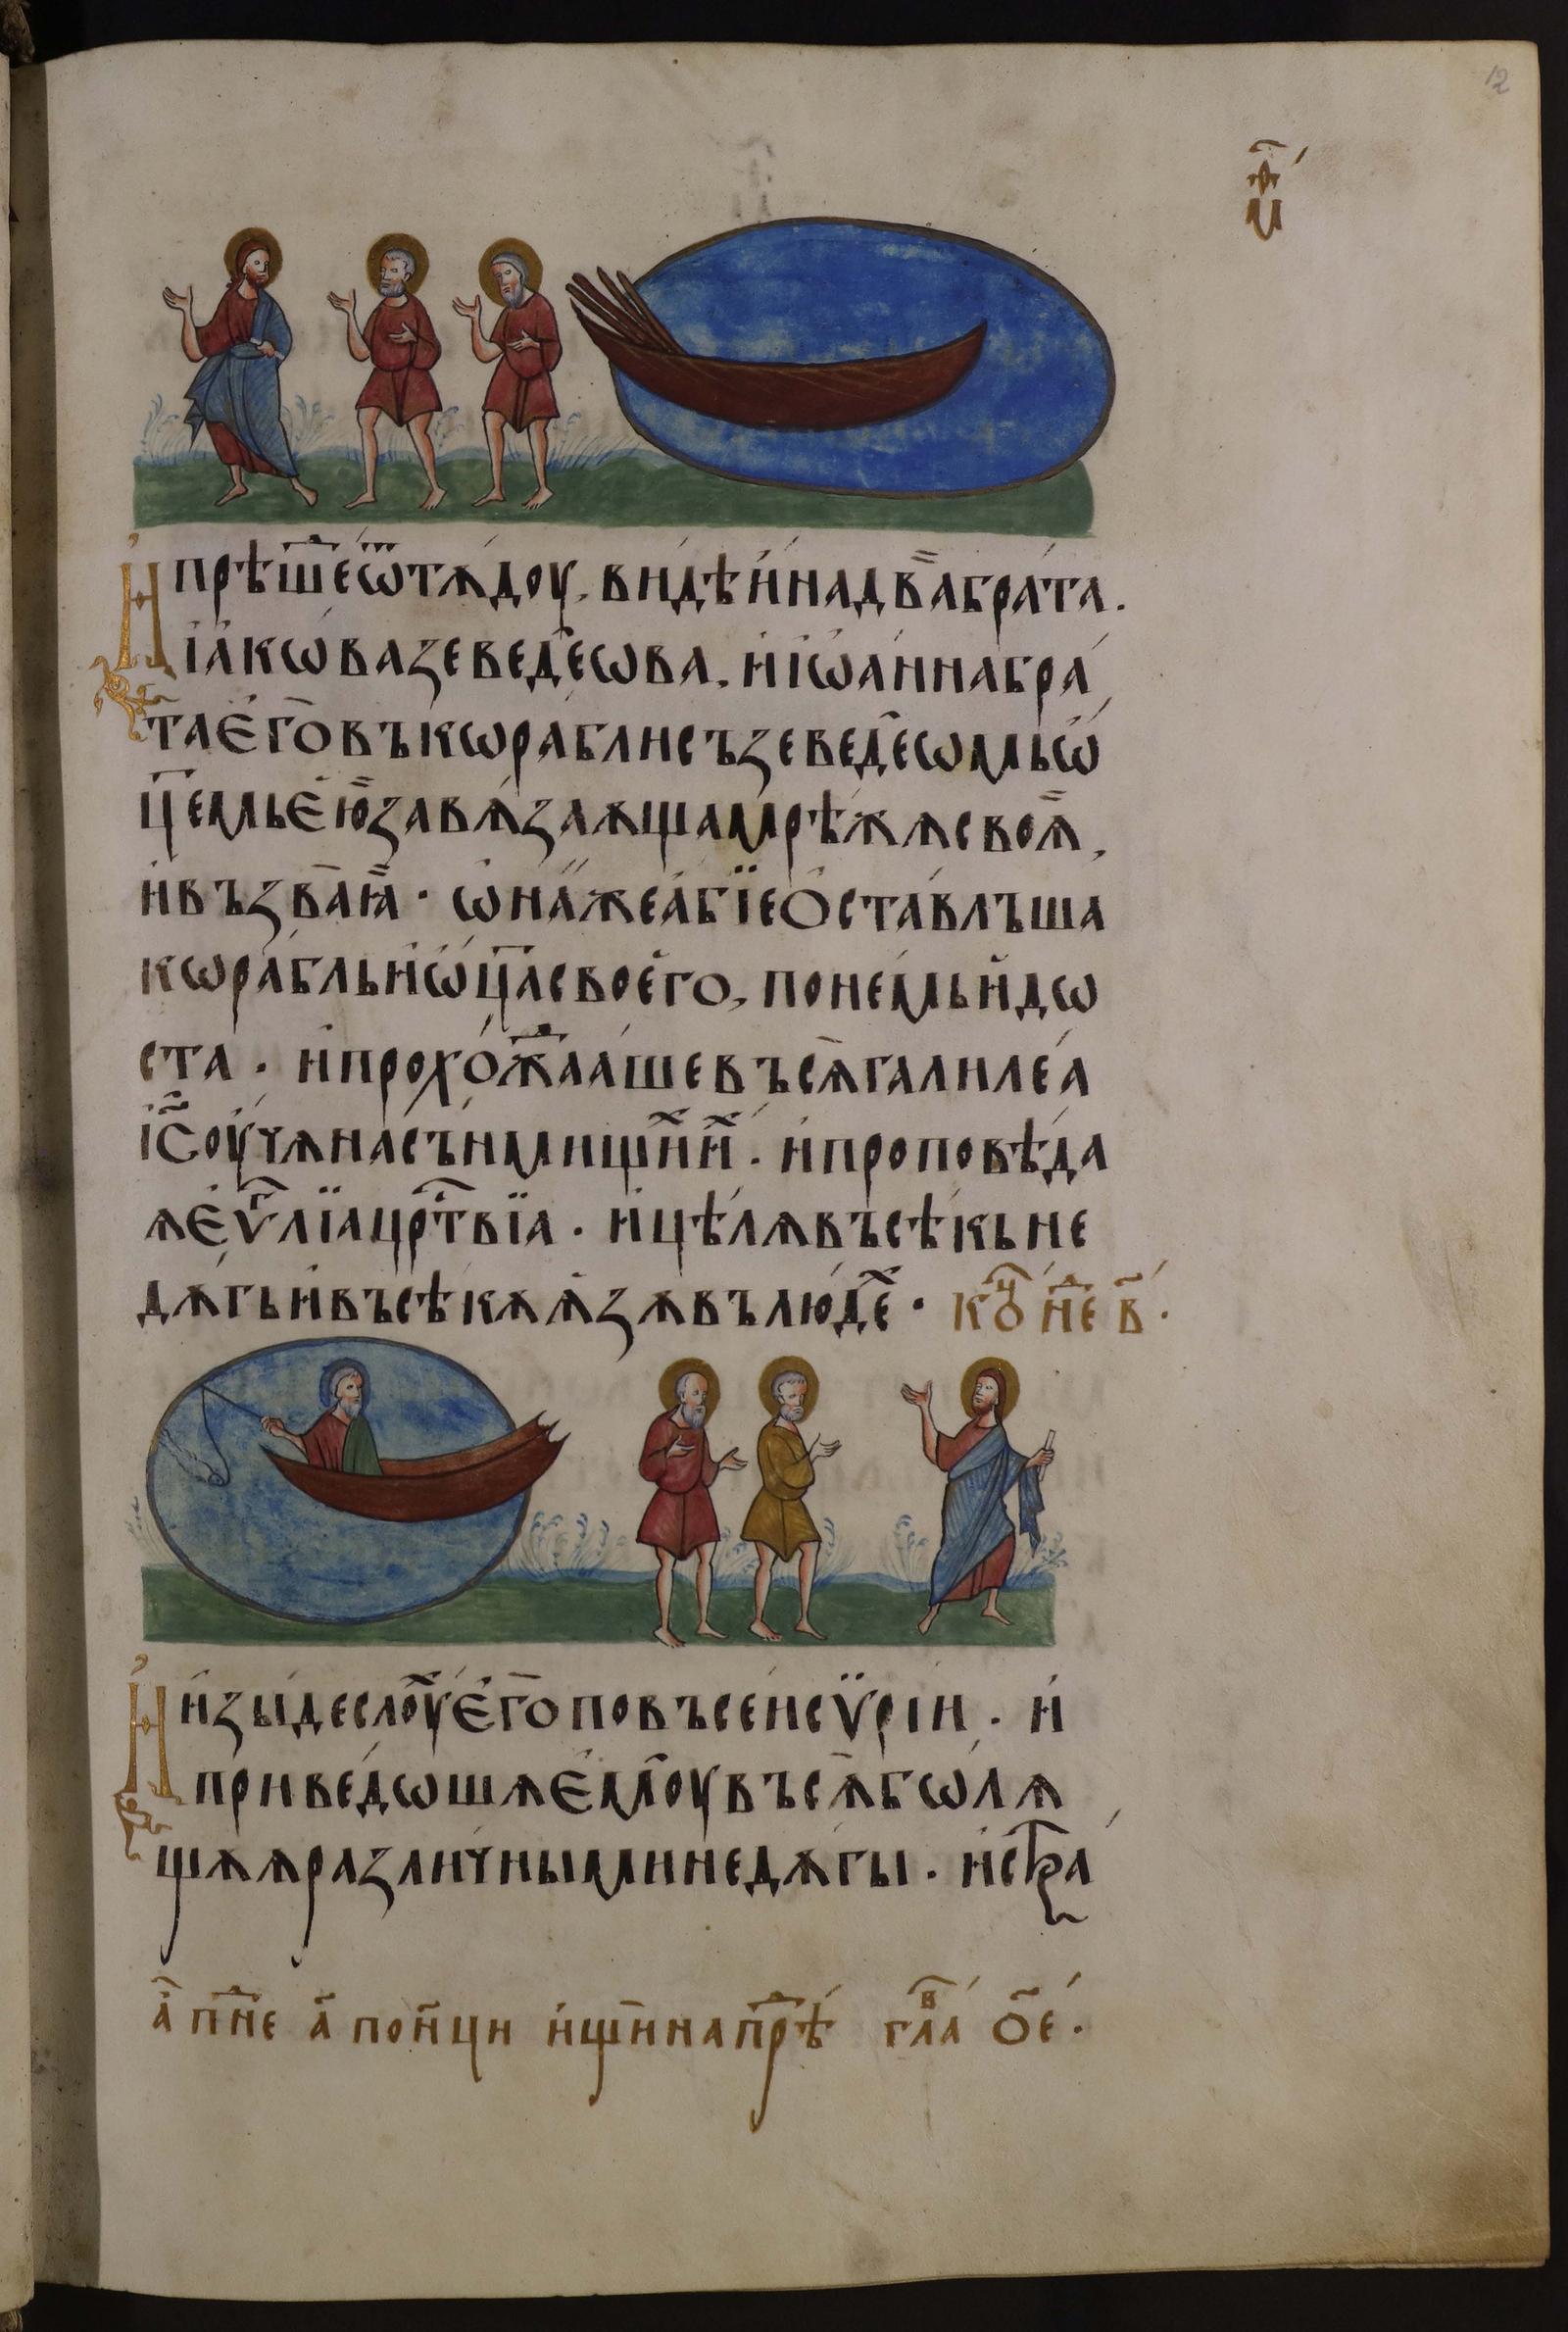 12
И прѣшеⷣ ѿтѫдоу. видѣ и́на два̀ бра́та.
іа́кѡва зеведеѡва. и́ іѡа́нна бра́
та е҆го̀ въ кѡрабли съ зеведеѡмь ѡ҆
ц҃емь е҆ю̀ завѧ́заѫща мрѣжѫ своѧ̀,
и҆ възва̀ ꙗ̀ · ѡ҆на́же а҆бїе ѻ҆ста́вльша
кѡра́бль и҆ ѡ҆ц҃а своего, по не́мь и҆дѡ
ста . и҆ прохѻжⷣааше въ сѧ̀ галиле́а
і҆с҃ оу҆чѧ на сънмищиⷯ иⷯ · и҆ проповѣ́да
ѫ е҆ѵⷢлїа црⷭ҇твїа · и҆ цѣ́лѧ въсѣ́кь не
дѫ́гь и҆ въсѣ́кѫ ѧ҆́зѫ въ лю́деⷯ · коⷱ нⷣе в҃ ·
И и҆зы́де слоуⷯ е҆го̀ по въсе́и сѵ́рїи · и҆
приведѡшѫ е҆моу въсѧ̀ бѡлѧ
щѫѧ разли́чными недѫ́гы · и҆ стрⷭ҇а
а҆҃ пнⷣе а҆҃ по н҃ци и҆щи на прѣⷣ глаⷡ ѻ҃е ·